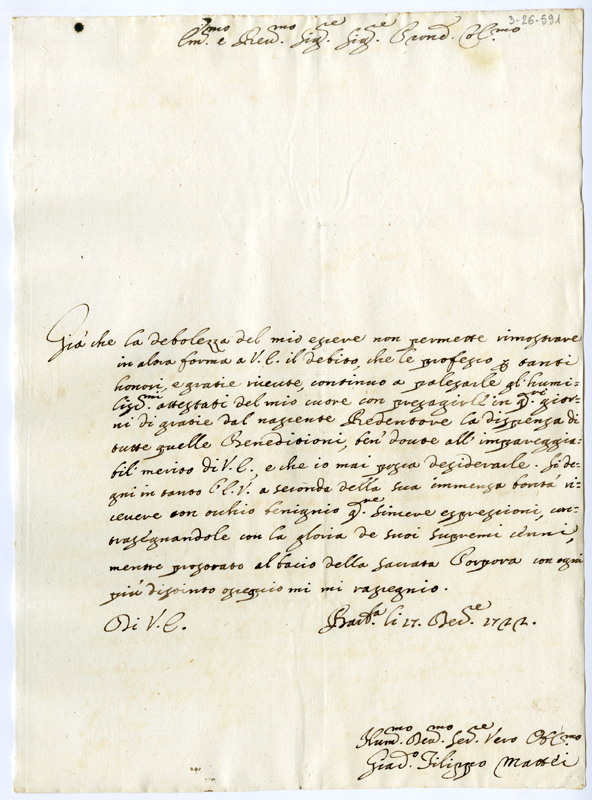 3-26-591
Em.mo e Rev.mo Sig.re Sig.re Pron. Col.mo
Già che la debolezza del mio essere non permette rimostrare
in altra forma a V. E. il debito, che le professo p tanti
honori, e gratie riceute, continuo a palesarle gl'humi-
liss.mi attestati del mio cuore con presagirle in q.ti gior-
ni di gratie dal nascente Redentore la dispensa di
tutte quelle Beneditioni, ben' doute all' impareggia-
bil' merito di V. E., e che io mai possa desiderarle. Si de-
gni in tanto l'E. V. a seconda della sua immensa bontà ri-
ceuere con occhio benignio q.re sincere espressioni, con-
trasegnandole con la gloria de suoi supremi cenni,
mentre prostrato al bacio della sacrata Porpora con ogni
più distinto ossequio mi mi rassegnio.
Di V. E.
li 17. Dec.e
Hum.mo Dev.mo Ser.re Vero Obl.mo
Filippo Mattei